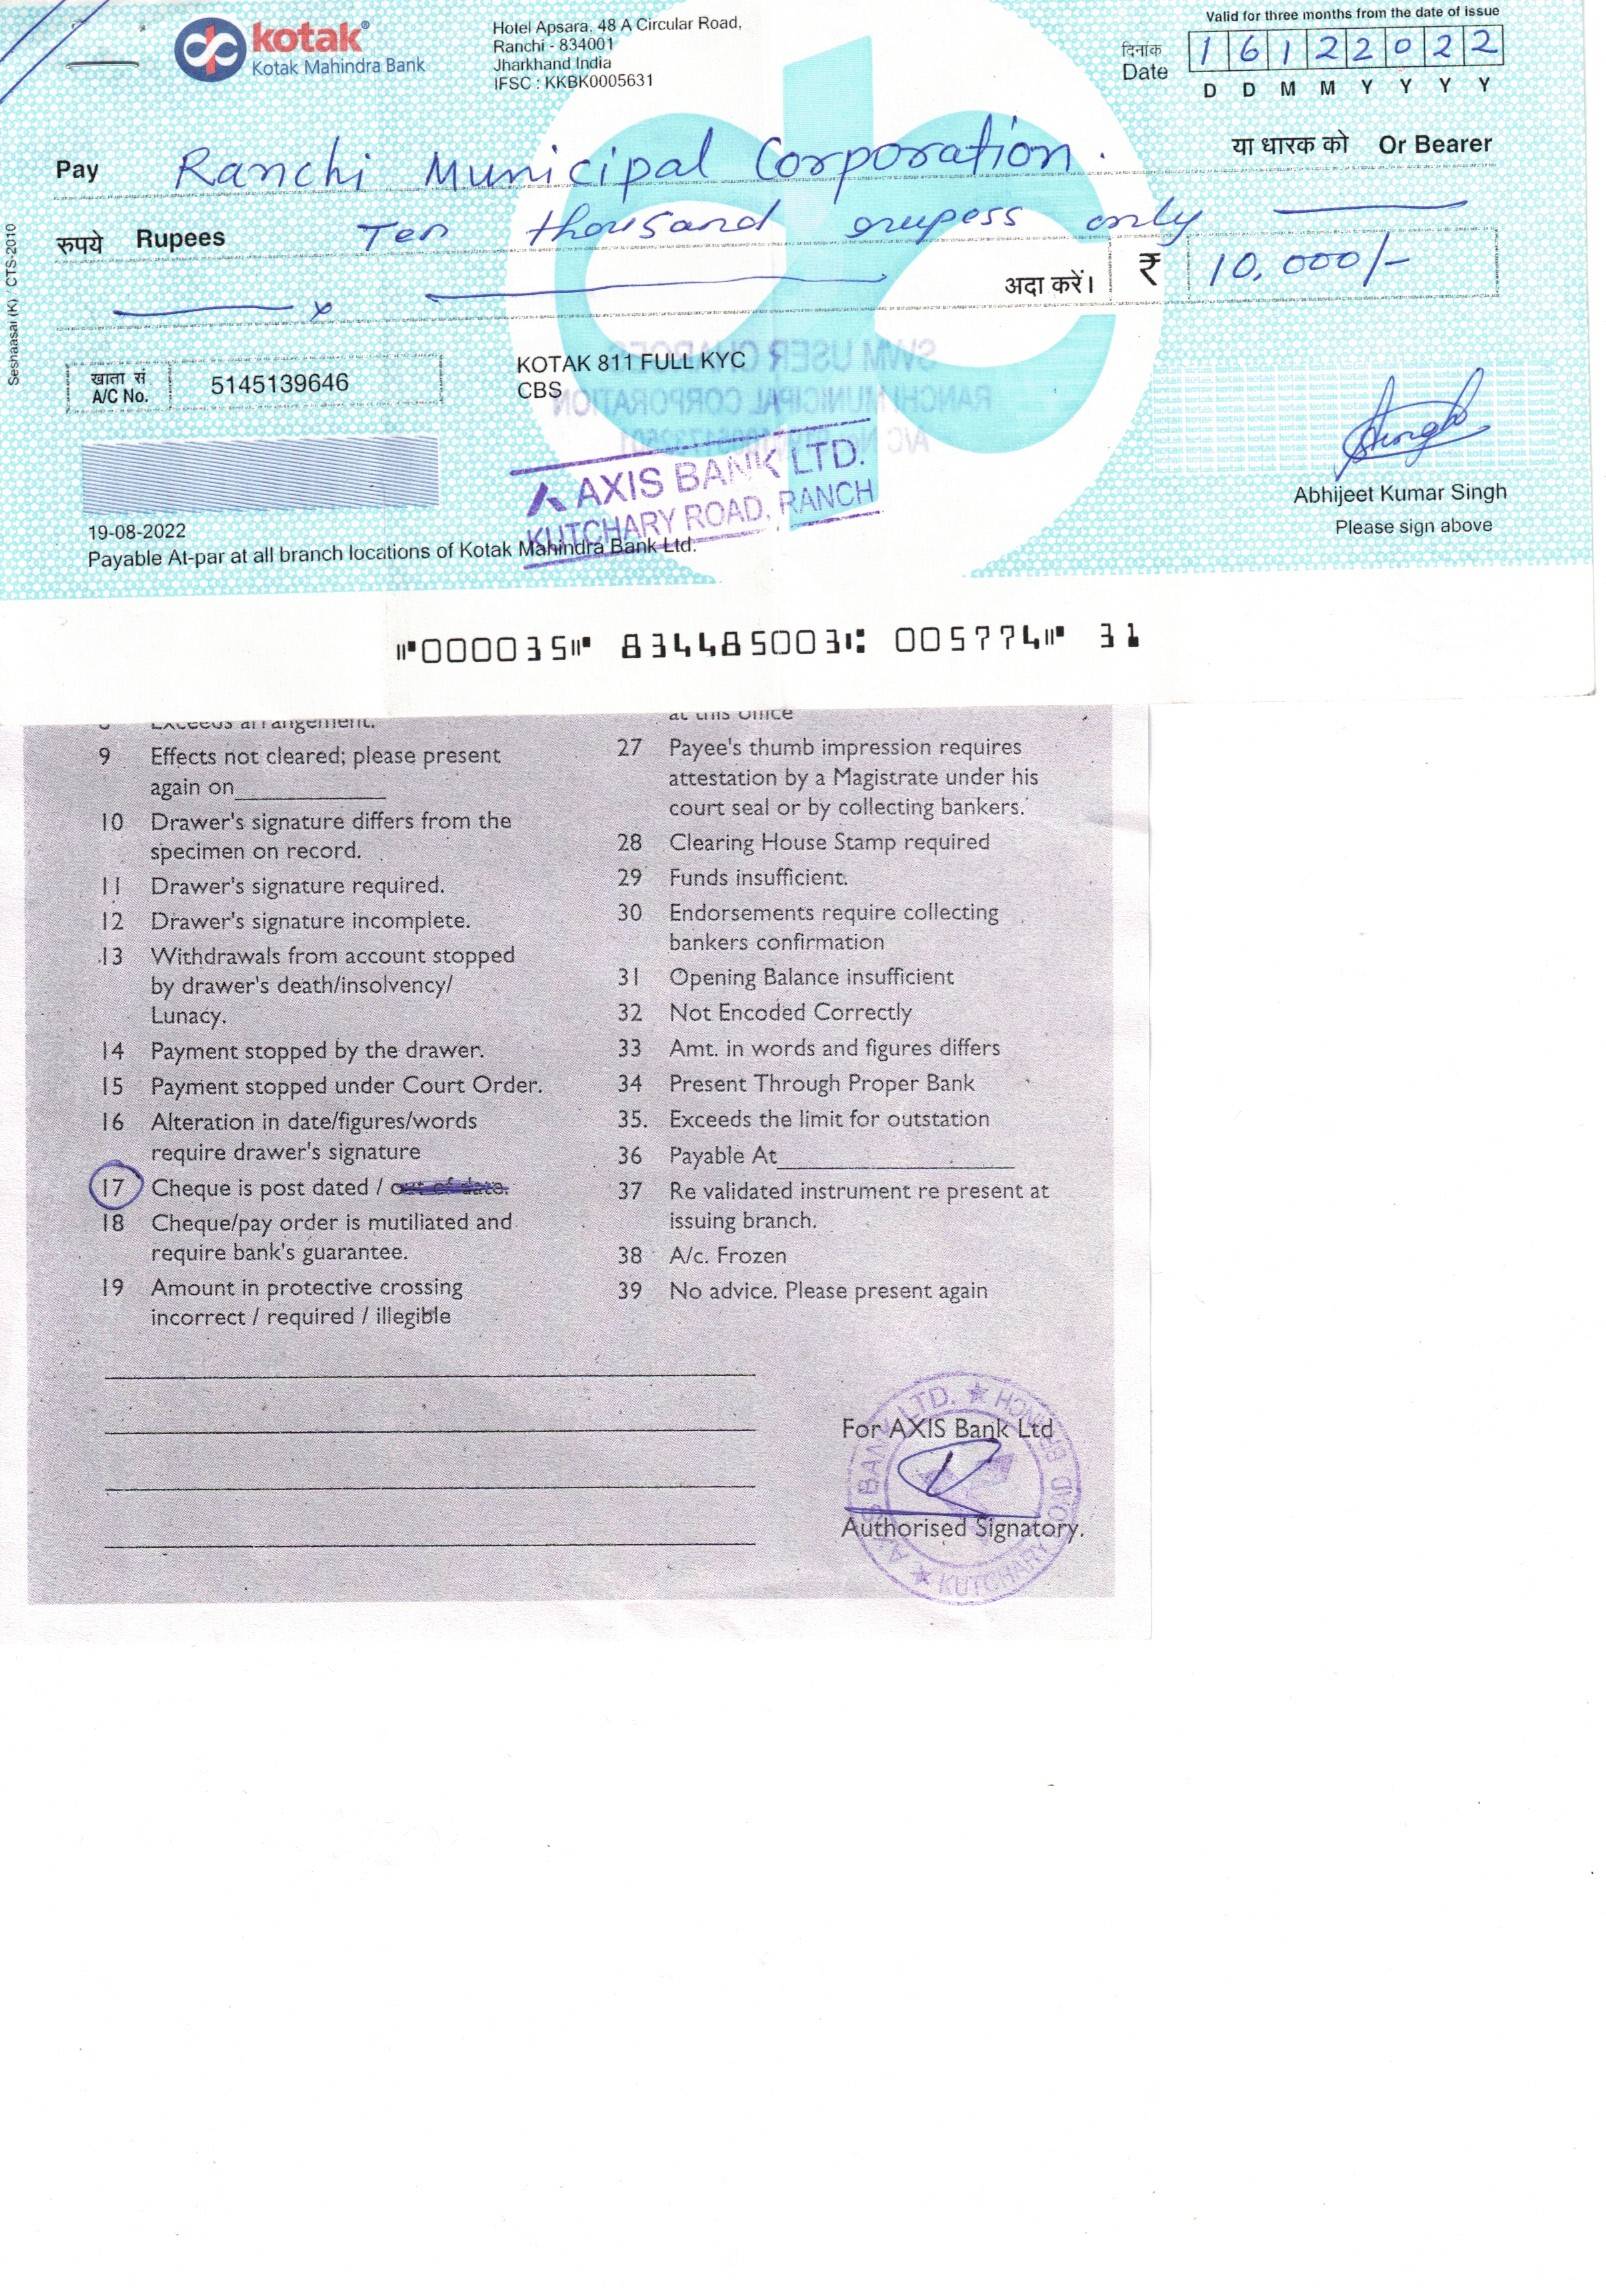 kotak®
Kotak Mahindra Bank
Hotel Apsara, 48 A Circular Road,
Ranchi - 834001
Jharkhand India
IFSC : KKBK0005631
Valid for three months from the date of issue
दिनांक
Date
1 6 1 2 2 0 2 2
D D M M Y Y Y Y
Pay Ranchi Municipal Corporation.
या धारक को Or Bearer
रुपये Rupees Ten thousand rupess only
अदा करें। ₹ 10,000/-
Seshaasai (K) / CTS-2010
खाता सं
A/C No.
5145139646
KOTAK 811 FULL KYC
CBS
SWM USER CHARGES
RANCHI MUNICIPAL CORPORATION
A/C No.
AXIS BANK LTD.
KUTCHARY ROAD, RANCH
Abhijeet Kumar Singh
Please sign above
19-08-2022
Payable At-par at all branch locations of Kotak Mahindra Bank Ltd.
⑈000035⑈ 834485003⑆ 005774⑈ 31
Exceeds arrangement.
9 Effects not cleared; please present
again on____________
10 Drawer's signature differs from the
specimen on record.
11 Drawer's signature required.
12 Drawer's signature incomplete.
13 Withdrawals from account stopped
by drawer's death/insolvency/
Lunacy.
14 Payment stopped by the drawer.
15 Payment stopped under Court Order.
16 Alteration in date/figures/words
require drawer's signature
17 Cheque is post dated / out of date.
18 Cheque/pay order is mutiliated and
require bank's guarantee.
19 Amount in protective crossing
incorrect / required / illegible
at this office
27 Payee's thumb impression requires
attestation by a Magistrate under his
court seal or by collecting bankers.
28 Clearing House Stamp required
29 Funds insufficient.
30 Endorsements require collecting
bankers confirmation
31 Opening Balance insufficient
32 Not Encoded Correctly
33 Amt. in words and figures differs
34 Present Through Proper Bank
35. Exceeds the limit for outstation
36 Payable At__________________
37 Re validated instrument re present at
issuing branch.
38 A/c. Frozen
39 No advice. Please present again
For AXIS Bank Ltd
Authorised Signatory.
AXIS BANK LTD. ★ RANCHI BRANCH
★ KUTCHARY ROAD